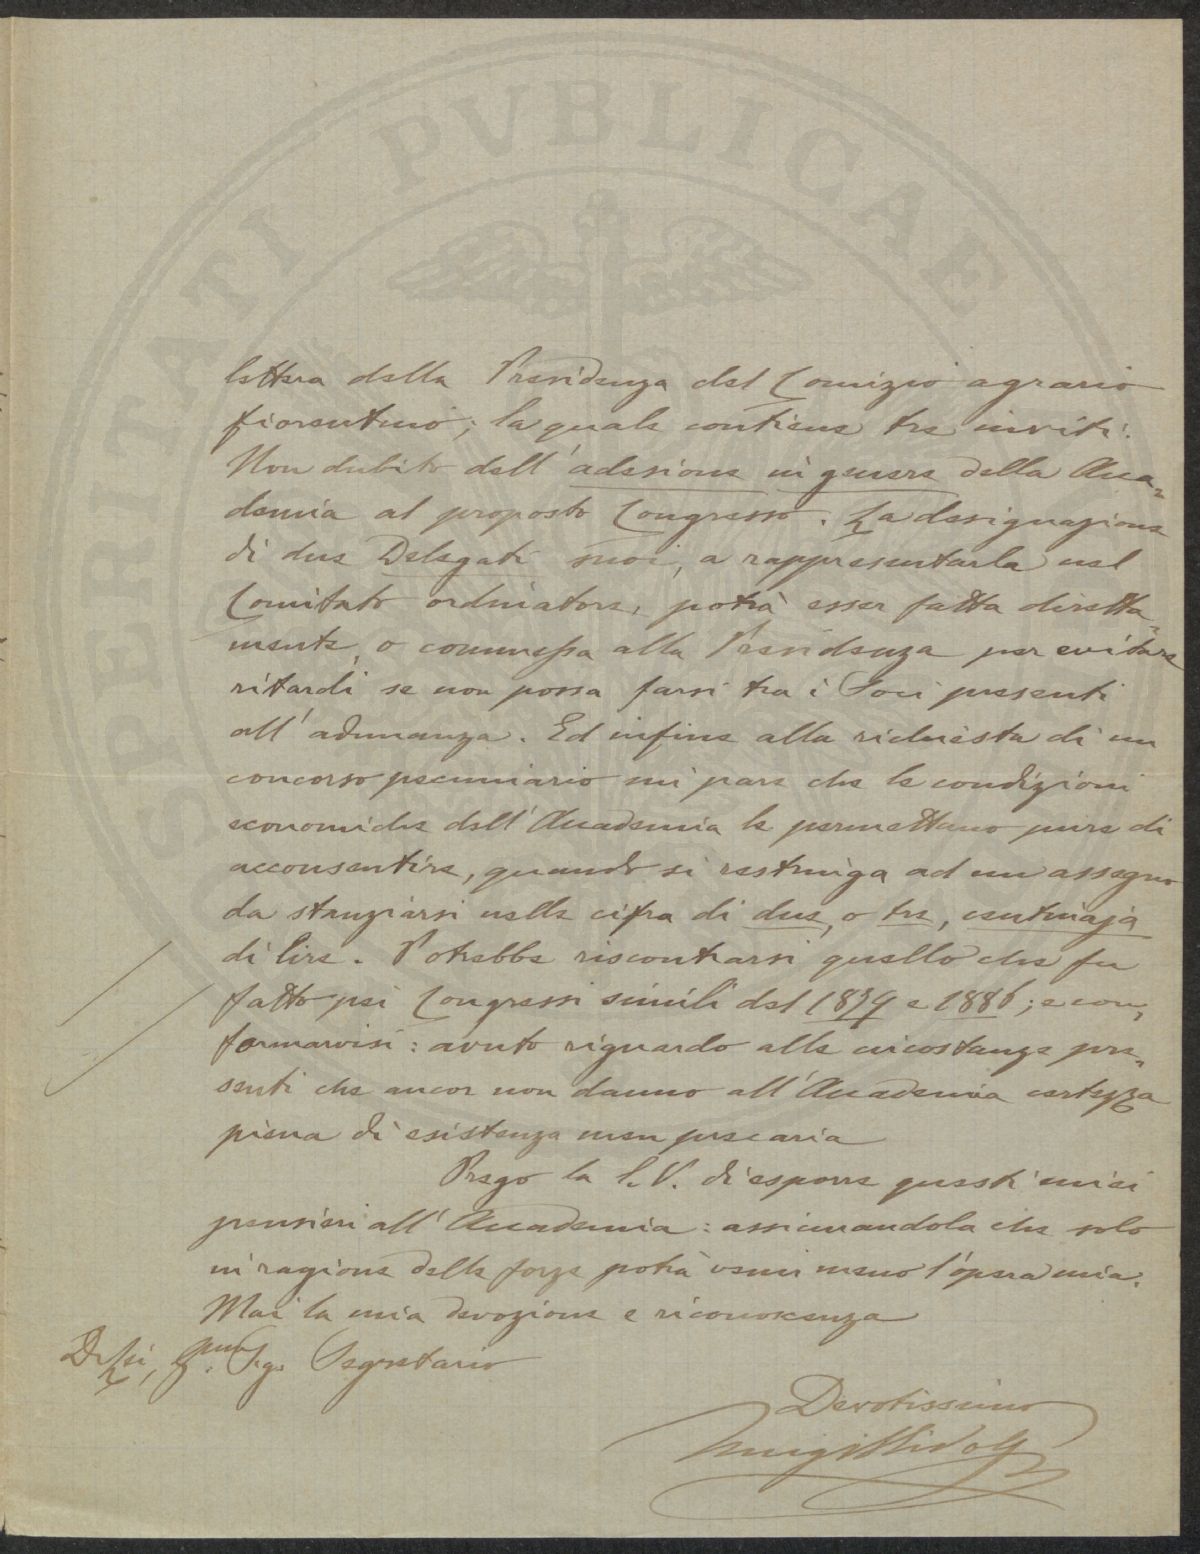 PROSPERITATI PVBLICAE
lettera della Presidenza del Comizio agrario
fiorentino; la quale contiene tre inviti.
Non dubito dell'adesione in genere della Acca-
demia al proposto Congresso. La designazione
di due Delegati suoi, a rappresentarla nel
Comitato ordinatore, potrà esser fatta diretta-
mente, o commessa alla Presidenza per evitare
ritardi se non possa farsi tra i Soci presenti
all'adunanza. Ed infine alla richiesta di un
concorso pecuniario mi pare che le condizioni
economiche dell'Accademia le permettano pure di
acconsentire, quando si restringa ad un assegno
da stanziarsi nella cifra di due, o tre, centinaja
di lire. Potrebbe riscontrarsi quello che fu
fatto pei Congressi simili del 1879 e 1886; e con-
formarvisi: avuto riguardo alle circostanze pre-
senti che ancor non danno all'Accademia certezza
piena di esistenza men precaria
Prego la S.V. di esporre questi miei
pensieri all'Accademia: assicurandola che solo
in ragione delle forze potrà venir meno l'opera mia.
Mai la mia devozione e riconoscenza
Di Lei, Sig. Segretario
Devotissimo
Luigi Ridolfi